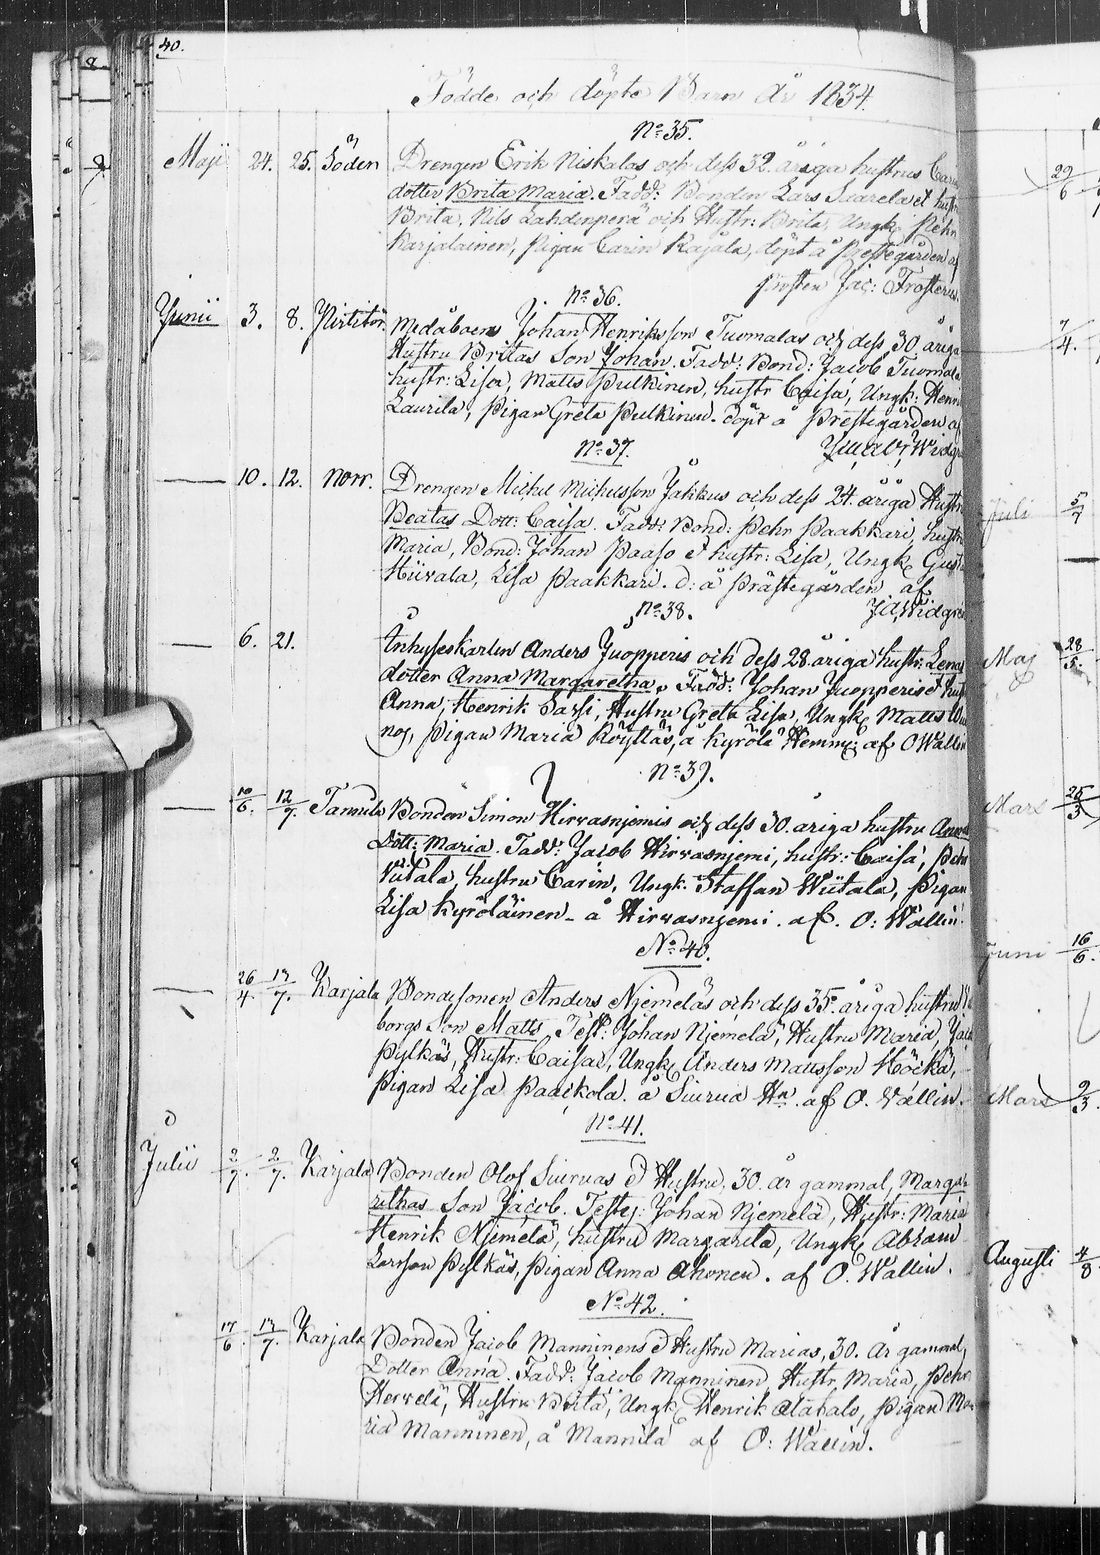 40.
Födde och döpte Barn År 1834.
No 35.
Maji 24. 25. Söder Drengen Erik Niskalas och dess 32. åriga hustrus
dotter Brita Maria. Fadd: Bonden Lars
Brita, Nils Lahdenperä och Hustr: Brita, Ungk. Pehr
Karjalainen, Pigan Carin Kajala, döpt å Prestegården af
Prosten Jac: Frosterus.
No 36.
Junii 3. 8. Johan Henriksson Tuomalas och dess 30 åriga
Hustru Britas Son Johan. Fadd: Bond: Jacob Tuomala
hustr: Lisa, Matts Pulkinen, hustr Caisa, Ungk: Henrik
Laurila, Pigan Greta Pulkinen. döpt å Prestegården af
No 37.
10. 12. Norr. Drengen Michel Michelsson Jakkus och dess 24. åriga Hustr:
Beatas Dott: Caisa. Fadd: Bond: Pehr Paakkari, hustr:
Maria, Bond: Johan Paaso & hustr: Lisa, Ungk
Hiivala, Lisa Paakkari. d: å Prästegården af
No 38.
6. 21. Inhyseskarlen Anders Juopperis och dess 28 åriga hustr: Lenas
dotter Anna Margaretha. Fadd: Johan Juopperis &
Anna, Henrik Sassi, Hustru Greta Lisa, Ungk Matts
Pigan Maria Köyttäs, å Kyrölä Hemm: af O Wallin
No 39.
10/6. 12/7. Tannila Bonden Simon Hirvasnjemis och dess 30. åriga hustru Annas
Dott: Maria. Fadd: Jacob Hirvasnjemi, hustr: Caisa, Pehr
Viitala, hustru Carin, Ungk: Staffan Wiitala, Pigan
Lisa Kyröläinen - å Hirvasnjemi. af. O: Wallin.
No 40.
26/4. 13/7. Karjala Bondesonen Anders Njemeläs och dess 35. åriga hustru
borgs Son Matts. Test: Johan Njemelä, Hustru Maria,
Pylkäs, Hustr: Caisa, Ungk Anders Mattsson Höckä,
Pigan Lisa Paackola. å Siurua Hn. af O. Vallin.
No 41.
Julii 2/7. 2/7. Karjala Bonden Olof Siuruas & Hustru, 30. år gammal, Marga-
rethas Son Jacob. Testes: Johan Njemelä, Hustr: Maria
Henrik Njemelä, hustru Margareta, Ungk Abram
Larsson Pylkäs, Pigan Anna Ahonen. af O. Wallin.
No 42.
17/6. 13/7. Karjala Bonden Jacob Manninens & Hustru Marias, 30. År gammal,
Dotter Anna. Fadd: Jacob Manninen, Hustr, Maria, Pehr
Hervelä, Hustru Brita, Ungk Henrik Alatalo, Pigan Ma-
ria Manninen, å Mannila af O: Wallin.
29/6
7/4.
Juli 5/7
Maj 28/5.
Mars 25/3
Juni 16/6.
Mars 2/3.
Augusti 4/8